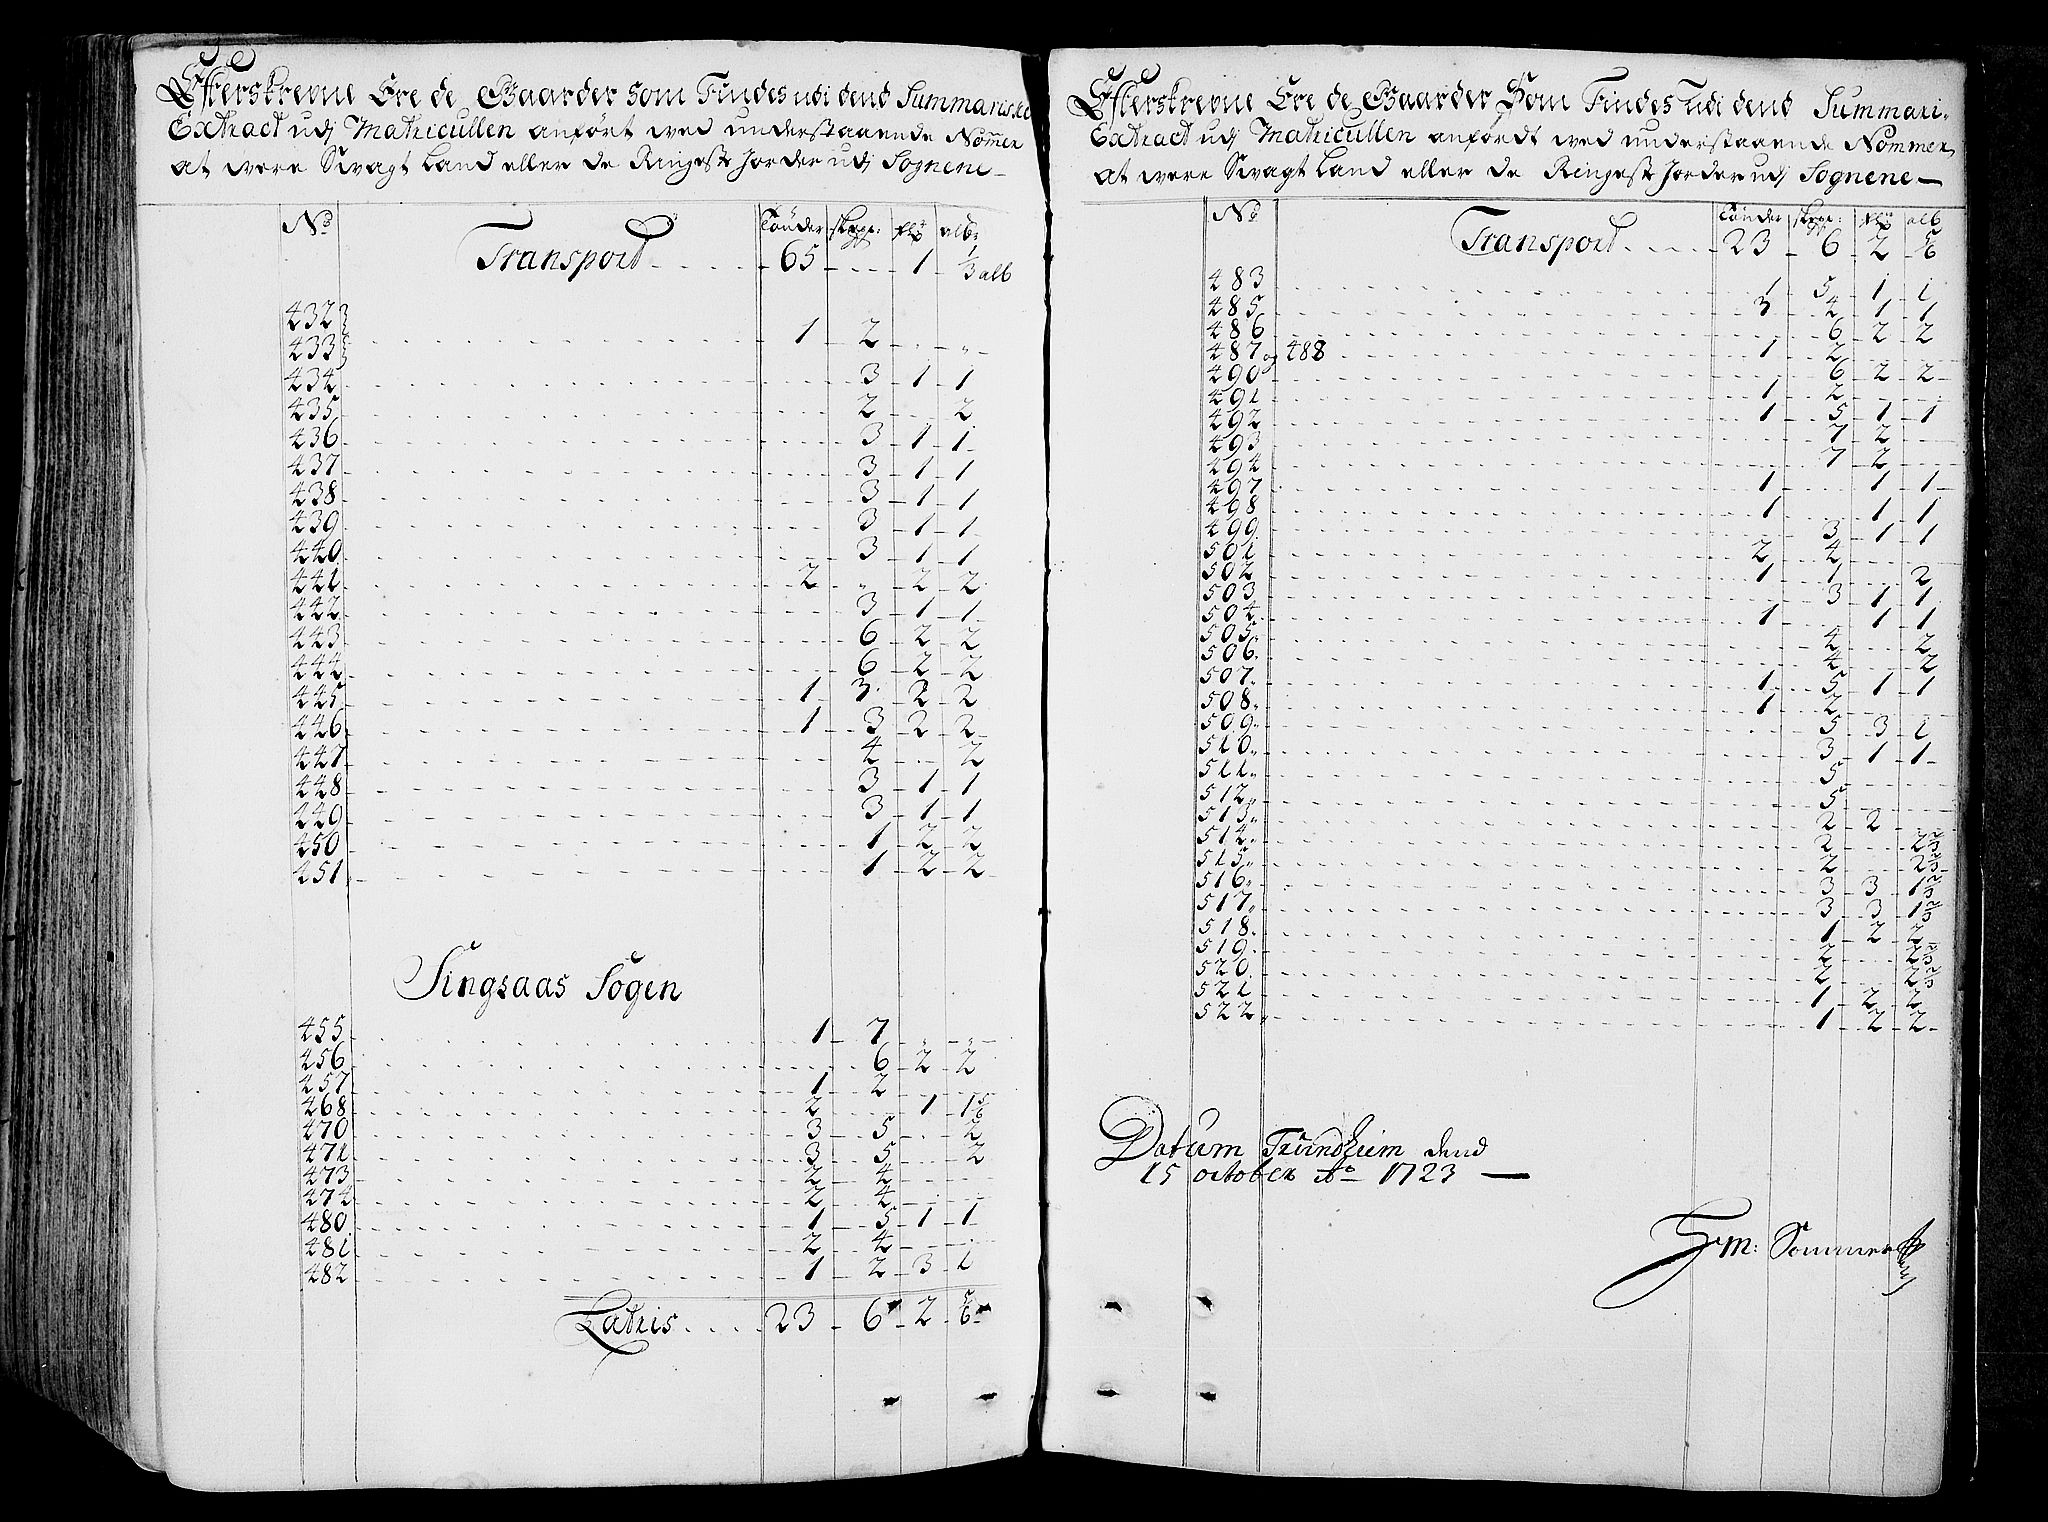 Efterskrevne Ere de Gaarder som Findes udi dend Summariske
Extract udj Matricullen anført wed understaaende Nommer
at were Svagt Land eller de Ringeste Jorder udj Sognene
No Tönder skpe: alb:
Transport 65 1 1/3 alb
432
433 1 2
434 3 1 1
435 2 2
436 3 1 1
437 3 1 1
438 3 1 1
439 3 1 1
440 3 1 1
441 2 2 2
442 3 1 1
443 6 2 2
444 6 2 2
445 1 3 2 2
446 1 3 2 2
447 4 2
448 3 1 1
449 3 1 1
450 1 2 2
451 1 2 2
Singsaas Sogen
455 1 7
456 6 2 2
457 1 2
468 2 1 1 5/6
470 3 5 2
471 3 5 2
473 2 4
474 2 4
480 1 5 1 1
481 2 4
482 1 2 3 1
Latris 23 6 2 5/6
Efterskrevne Ere de Gaarder Som Findes udi dend Summari-
Extract udj Matricullen anfördt wed understaaende Nommer
at were Svagt Land eller de Ringeste Jorder udj Sognene
No Tönder skpe: alb
Transport 23 6 2 5/6
483 1 5 1 1
485 3 4 1 1
486 6 2 2
487 og 488 1 2
490 6 2 2
491 1 2
492 1 5 1 1
493 7 2
494 7 2
497 1 1 1
498 1 1 1
499 3 1 1
501 2 4
502 1 1 2
503 3 1 1
504 1 1 1
505 4 2
506 4 2
507 1 5 1 1
508 1 2
509 5 3 1
510 3 1 1
511 5
512 5
513 2 2
514 2 2 2/3
515 2 2 2/3
516 3 3 1 2/3
517 3 3 1 2/3
518 1 2 2
519 2 2 2/3
520 2 2 2/3
521 1 2 2
522 1 2 2
Datum Trundheim dend
15 october Ao 1723
Sommer